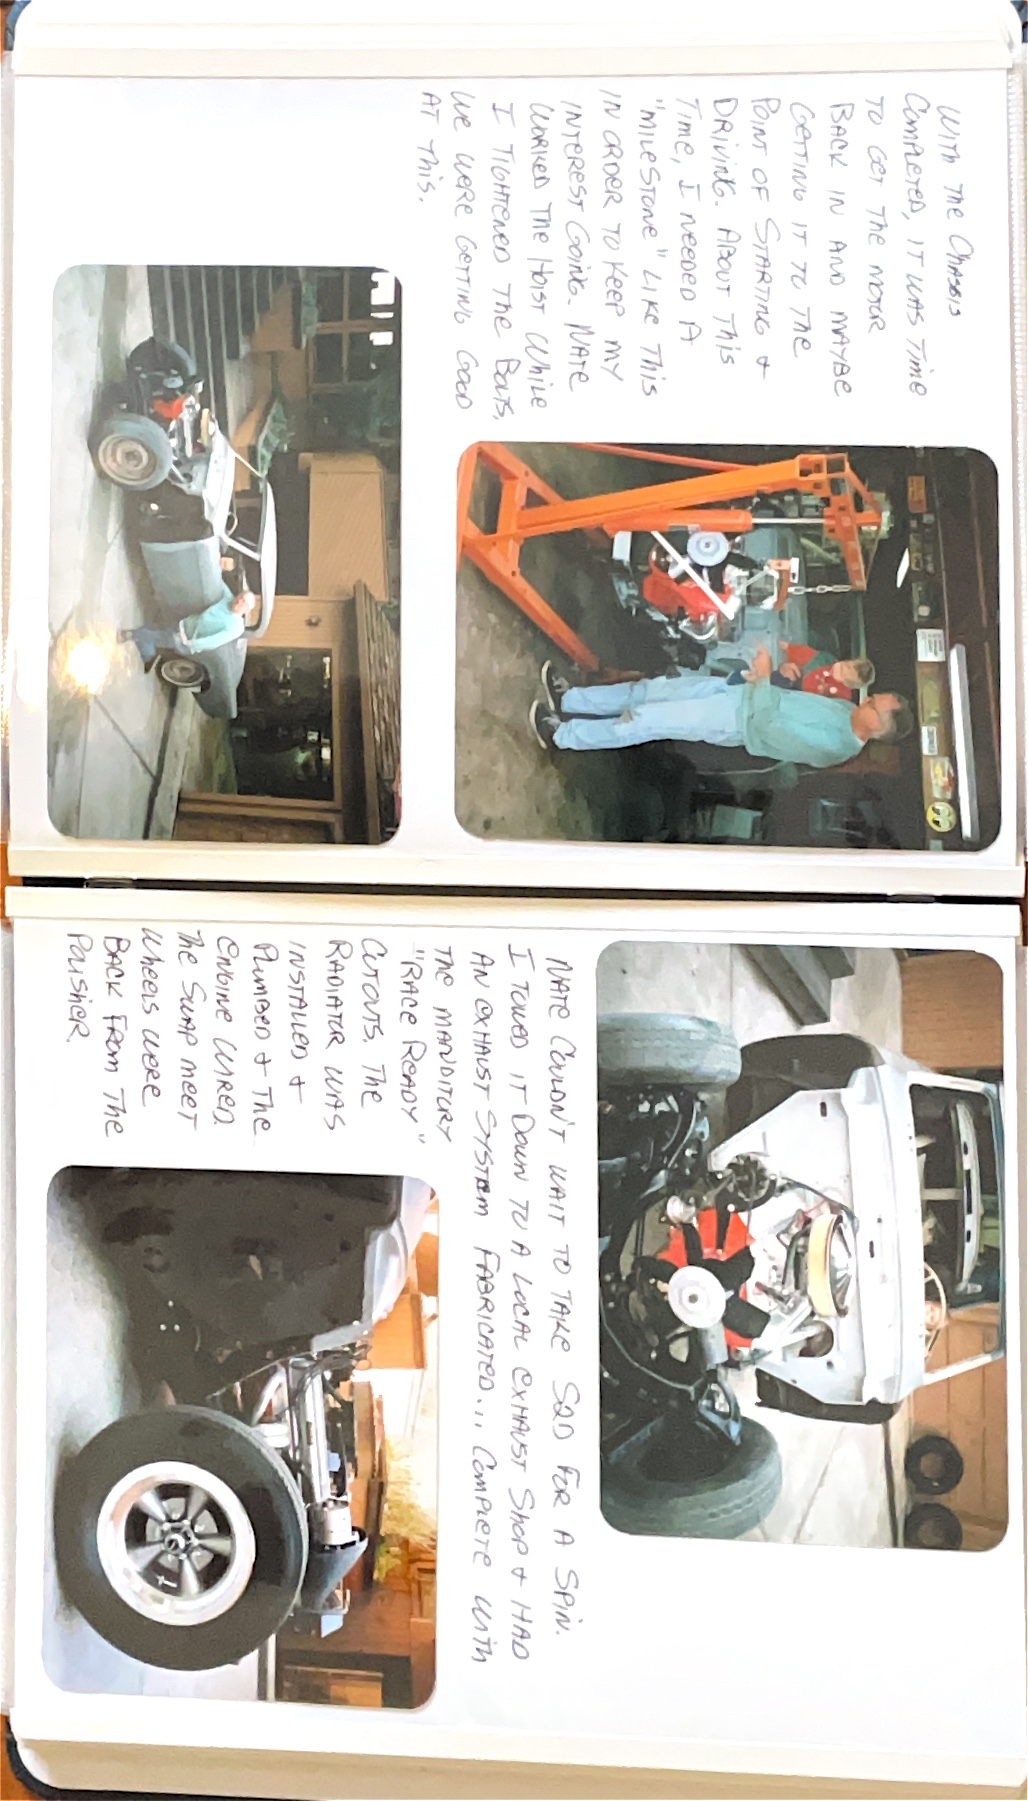 With the Chassis
Completed, it was time
to get the motor
back in and maybe
getting it to the
point of starting &
driving. About this
time, I needed a
"milestone" like this
in order to keep my
interest going. Nate
worked the hoist while
I tightened the bolts.
We were getting good
at this.
Nate couldn't wait to take S2D for a spin.
I towed it down to a local exhaust shop & had
an exhaust system fabricated... complete with
the manditory
"Race Ready"
cutouts. The
radiator was
installed &
plumbed & the
engine wired.
The swap meet
wheels were
back from the
polisher.